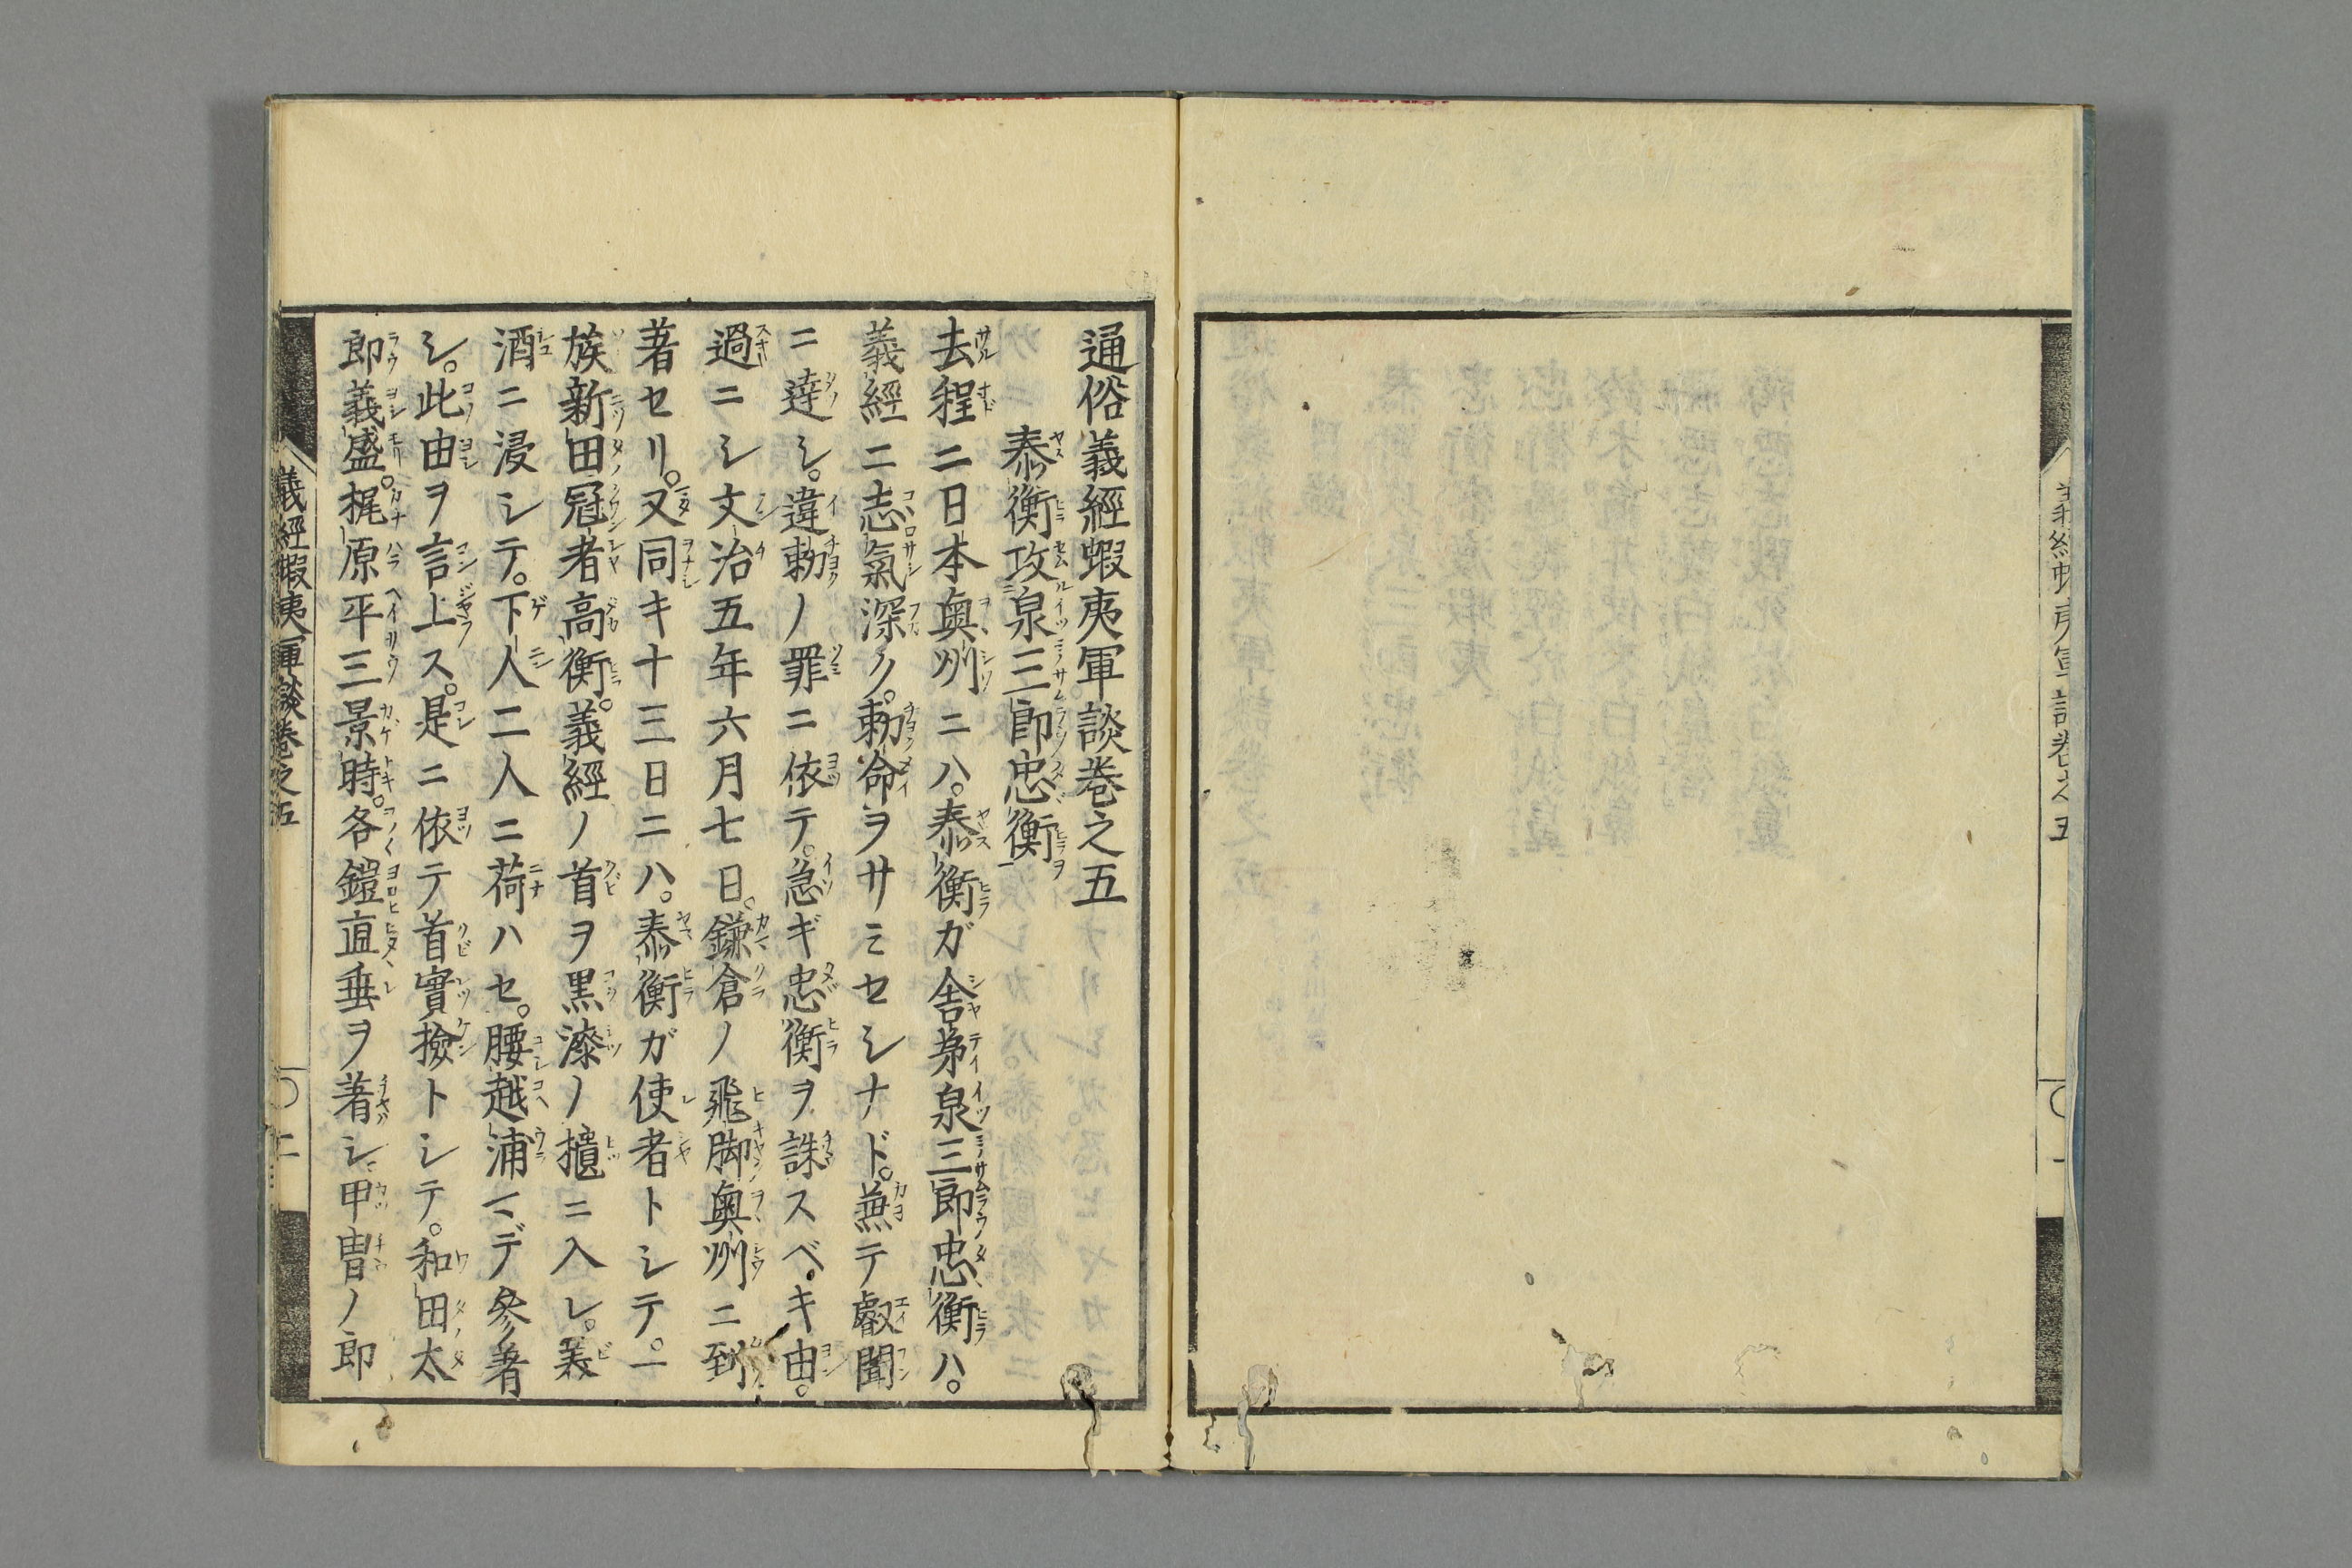 通俗義經蝦夷軍談巻之五
泰衡攻泉三郎忠衡
去程ニ日本奥州ニハ。泰衡ガ舎弟泉三郎忠衡ハ。
義經ニ志氣深ク。勅命ヲサミセシナド。兼テ叡聞
ニ達シ。違勅ノ罪ニ依テ。急ギ忠衡ヲ誅スベキ由。
過ニシ文治五年六月七日。鎌倉ノ飛脚奥州ニ到
著セリ。又同キ十三日ニハ。泰衡ガ使者トシテ。一
族新田冠者高衡。義經ノ首ヲ黒漆ノ櫃ニ入レ。美
酒ニ浸シテ。下人二人ニ荷ハセ。腰越浦マデ參著
シ。此由ヲ言上ス。是ニ依テ首實撿トシテ。和田太
郎義盛。梶原平三景時。各鎧直垂ヲ著シ甲冑ノ郎
義經蝦夷軍談巻之五
二
義經蝦夷軍談巻之五
一